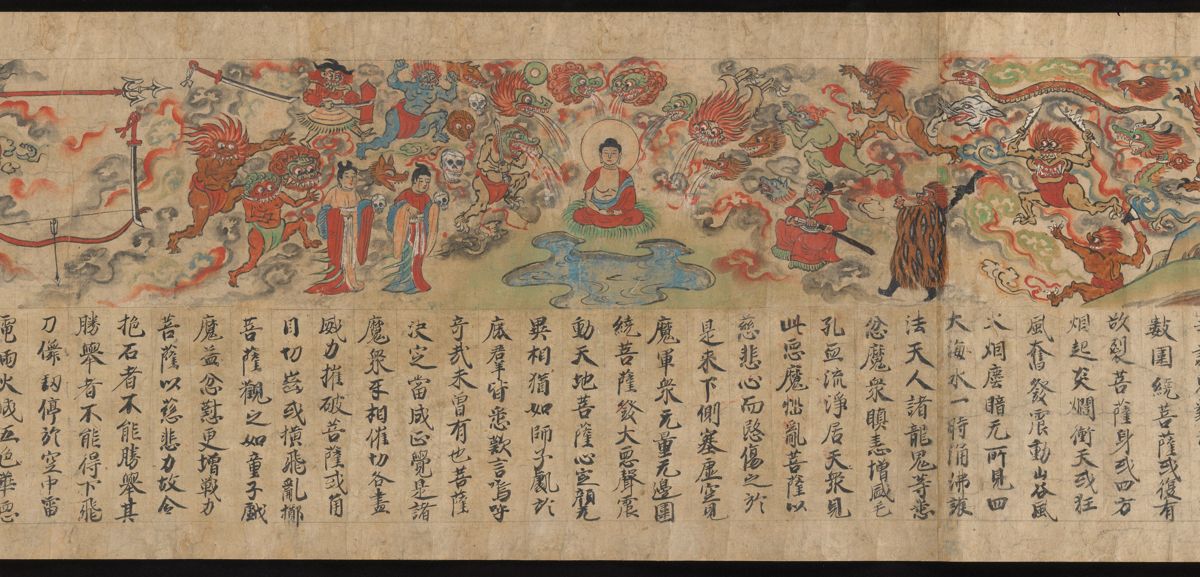 數圍繞菩薩或復有
欲裂菩薩身或四方
烟起炎爓衝天或狂
風奮發震動山谷風
火烟塵暗无所見四
大海水一時涌沸護
法天人諸龍鬼等悉
忿魔衆瞋恚增盛毛
孔血流淨居天衆見
此惡魔惱亂菩薩以
慈悲心而愍傷之於
是來下側塞虛空見
魔軍衆无量无邊圍
繞菩薩發大惡聲震
動天地菩薩心定顏无
異相猶如師子處於
鹿群皆悉歎言嗚呼
奇哉未曾有也菩薩
決定當成正覺是諸
魔衆互相催切各盡
威力摧破菩薩或角
目切齒或橫飛亂擲
菩薩觀之如童子戲
魔益忿懟更增戰力
菩薩以慈悲力故令
抱石者不能勝舉其
勝舉者不能得下飛
刀儛釰停於空中雷
電雨火成五色華惡